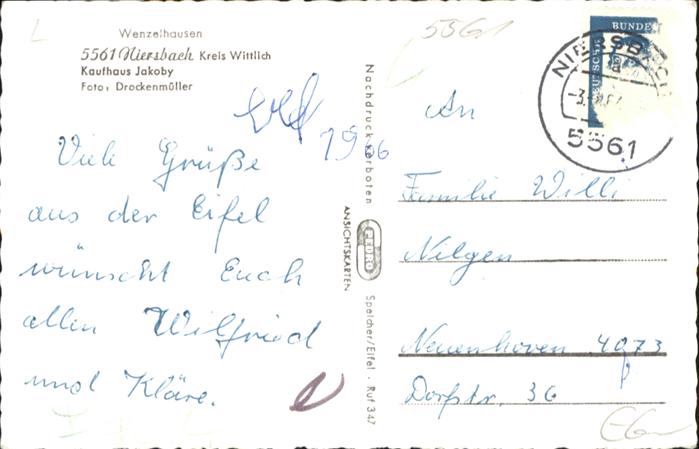 Wenzelhausen
5561 Niersbach Kreis Wittlich
Kaufhaus Jakoby
Foto: Drockenmüller
5561
Viele Grüße
aus der Eifel
wünscht Euch
allen Wilfried
und Kläre.
Nachdruck verboten
ANSICHTSKARTEN
PEDRO
Speicher/Eifel · Ruf 347
BUNDES
NIERSBACH
5561
An
Familie Willi
Nelgen
Neuenhoven 4073
Dorfstr. 36